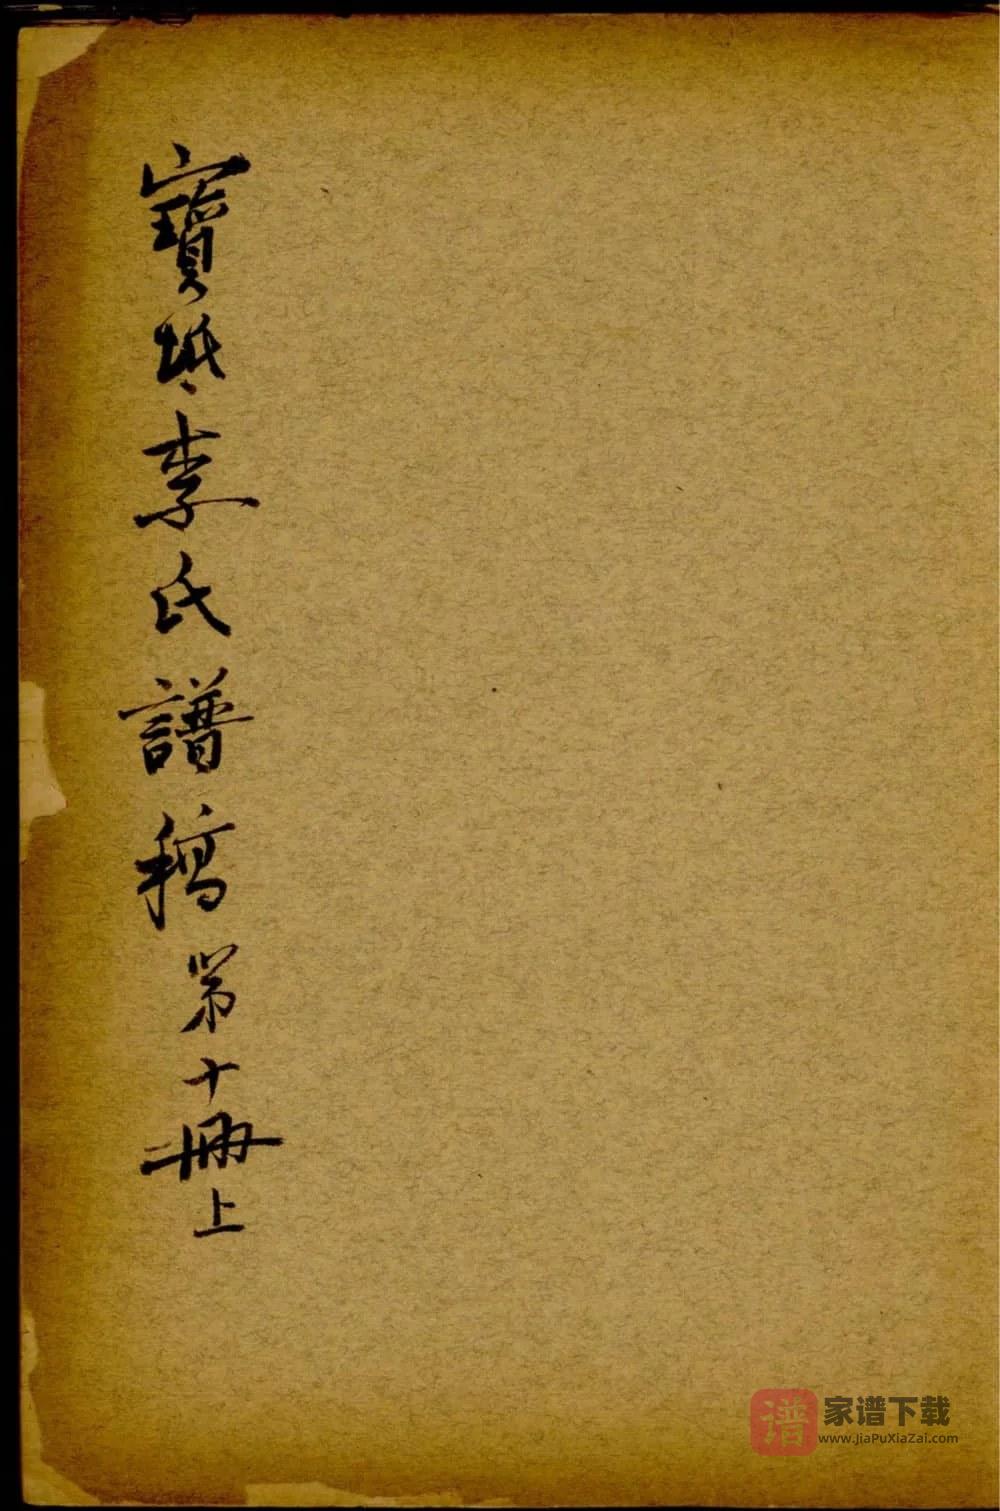 寶坻李氏譜稿第十冊上
谱
家谱下载
www.JiaPuXiaZai.com